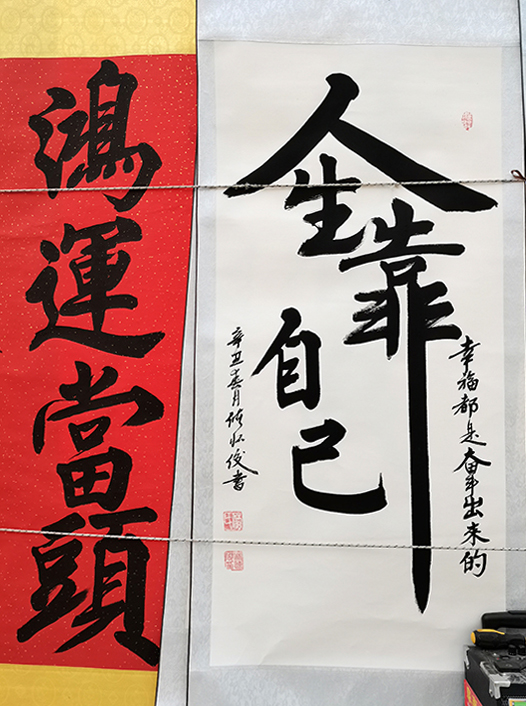 鴻運當頭
人生靠自己
幸福都是奋斗出来的
辛丑春月書